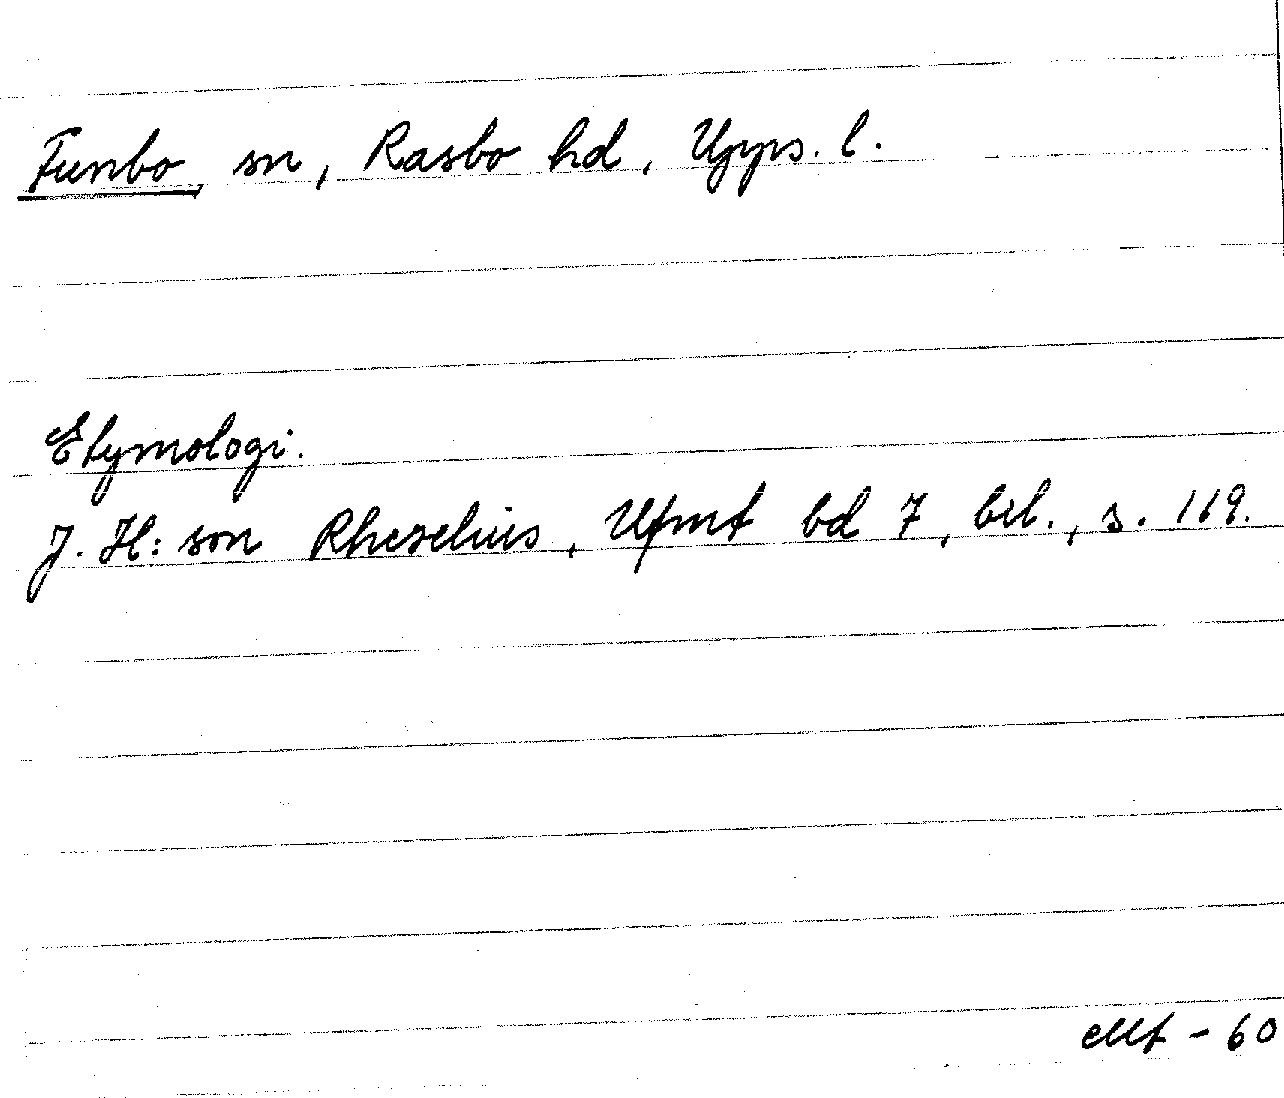 Funbo, sn, Rasbo hd, Upps. l.
Etymologi.
J. H:son Rhezelius, Ufmt bd 7, bil., s. 119.
Mf - 60